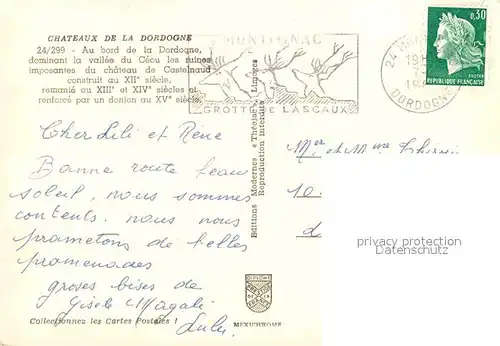 CHATEAUX DE LA DORDOGNE
24/299 - Au bord de la Dordogne,
dominant la vallée du Céou les ruines
imposantes du château de Castelnaud
construit au XIIe siècle,
remanié au XIIIe et XIVe siècles et
renforcé par un donjon au XVe siècle.
MONTIGNAC
GROTTE DE LASCAUX
0,30
POSTES
REPUBLIQUE FRANÇAISE
24
19H
DORDOGNE
Cher Lili et Réne
Bonne route beau
soleil, nous sommes
contents. nous nous
prametons de belles
promenades
groses bises de
Gisele Magali
Lulu.
Editions Modernes « Théojac », Limoges
Reproduction interdite
Mer et Mme
10.
privacy protection
Datenschutz
Collectionnez les Cartes Postales !
MEXICHROME